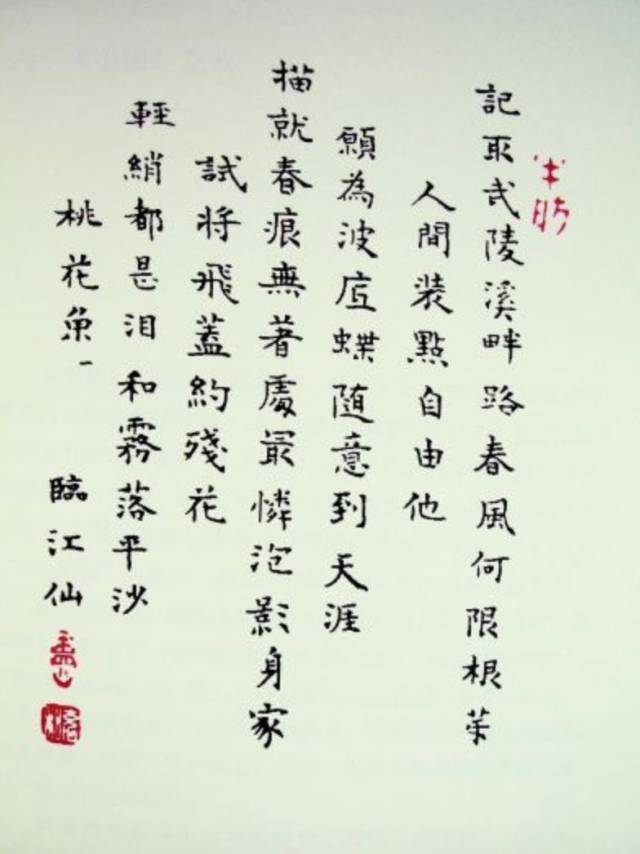 記取武陵溪畔路春風何限根芽
人間装點自由他
願為波底蝶随意到天涯
描就春痕無著處最憐泡影身家
試將飛蓋約殘花
輕綃都是泪和霧落平沙
桃花魚一 臨江仙